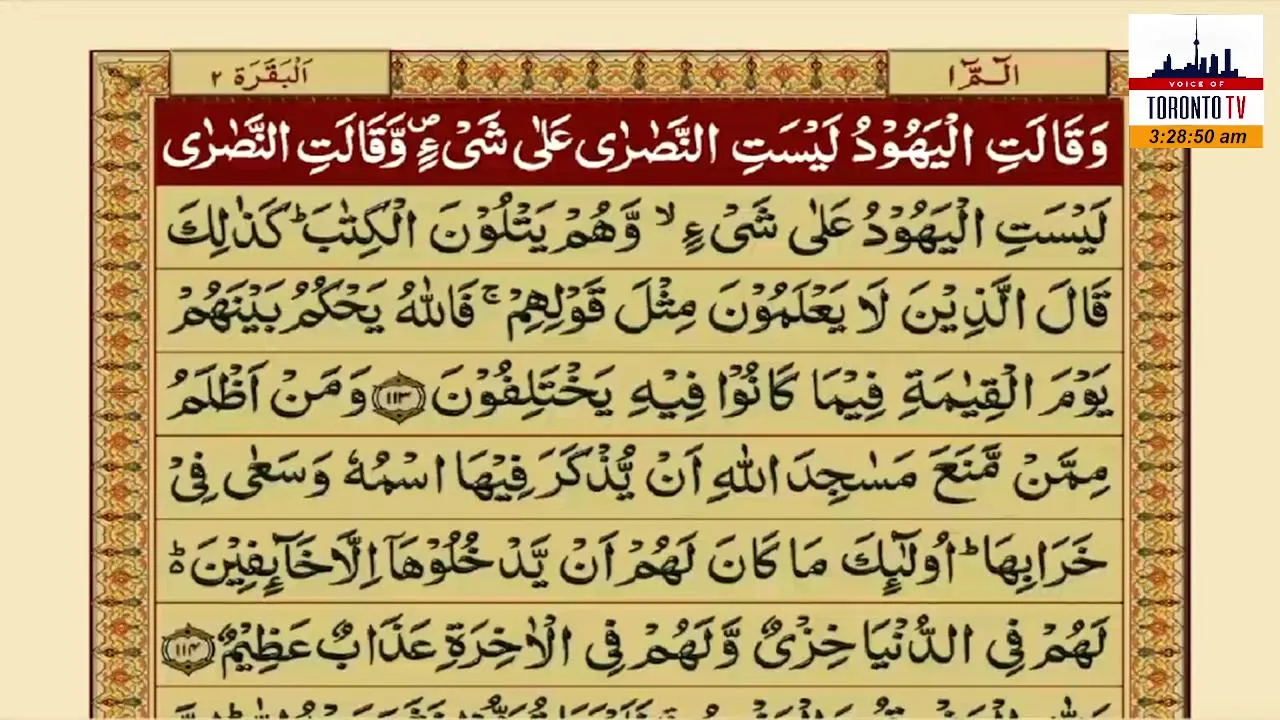 اَلْبَقَرَة ٢
الٓمّٓ ١
VOICE OF
TORONTO TV
3:28:50 am
وَقَالَتِ الْيَهُوْدُ لَيْسَتِ النَّصٰرٰى عَلٰى شَىْءٍ ۪ وَّقَالَتِ النَّصٰرٰى
لَيْسَتِ الْيَهُوْدُ عَلٰى شَىْءٍ ۙ وَّهُمْ يَتْلُوْنَ الْكِتٰبَ ؕ كَذٰلِكَ
قَالَ الَّذِيْنَ لَا يَعْلَمُوْنَ مِثْلَ قَوْلِهِمْ ۚ فَاللّٰهُ يَحْكُمُ بَيْنَهُمْ
يَوْمَ الْقِيٰمَةِ فِيْمَا كَانُوْا فِيْهِ يَخْتَلِفُوْنَ ١١٣ وَمَنْ اَظْلَمُ
مِمَّنْ مَّنَعَ مَسٰجِدَ اللّٰهِ اَنْ يُّذْكَرَ فِيْهَا اسْمُهٗ وَسَعٰى فِىْ
خَرَابِهَا ؕ اُولٰٓئِكَ مَا كَانَ لَهُمْ اَنْ يَّدْخُلُوْهَاۤ اِلَّا خَآئِفِيْنَ ؕ
لَهُمْ فِى الدُّنْيَا خِزْىٌ وَّلَهُمْ فِى الْاٰخِرَةِ عَذَابٌ عَظِيْمٌ ١١٤